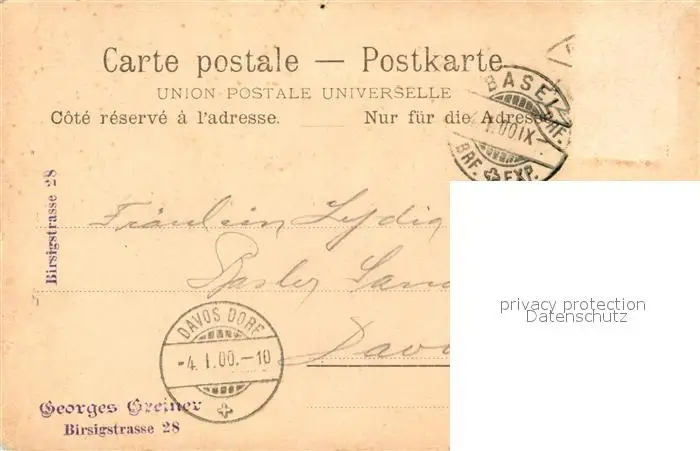 Carte postale — Postkarte
UNION POSTALE UNIVERSELLE
Côté réservé à l'adresse. Nur für die Adresse
BASEL
1.00 IX
BRF. EXP.
BRF.
Birsigstrasse 28
Fräulein Lydia
Basler
Davo
DAVOS DORF
-4.I.00.-10
Georges Greiner
Birsigstrasse 28
privacy protection
Datenschutz